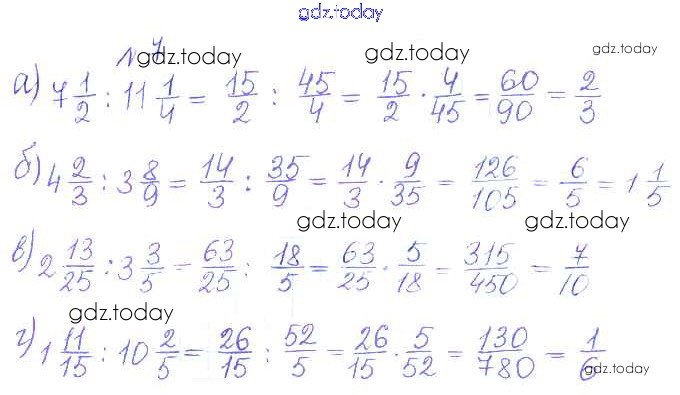 gdz.today
№4
gdz.today gdz.today gdz.today
а) 7 1/2 : 11 1/4 = 15/2 : 45/4 = 15/2 · 4/45 = 60/90 = 2/3
б) 4 2/3 : 3 8/9 = 14/3 : 35/9 = 14/3 · 9/35 = 126/105 = 6/5 = 1 1/5
gdz.today gdz.today
в) 2 13/25 : 3 3/5 = 63/25 : 18/5 = 63/25 · 5/18 = 315/450 = 7/10
gdz.today
г) 1 11/15 : 10 2/5 = 26/15 : 52/5 = 26/15 · 5/52 = 130/780 = 1/6
gdz.today